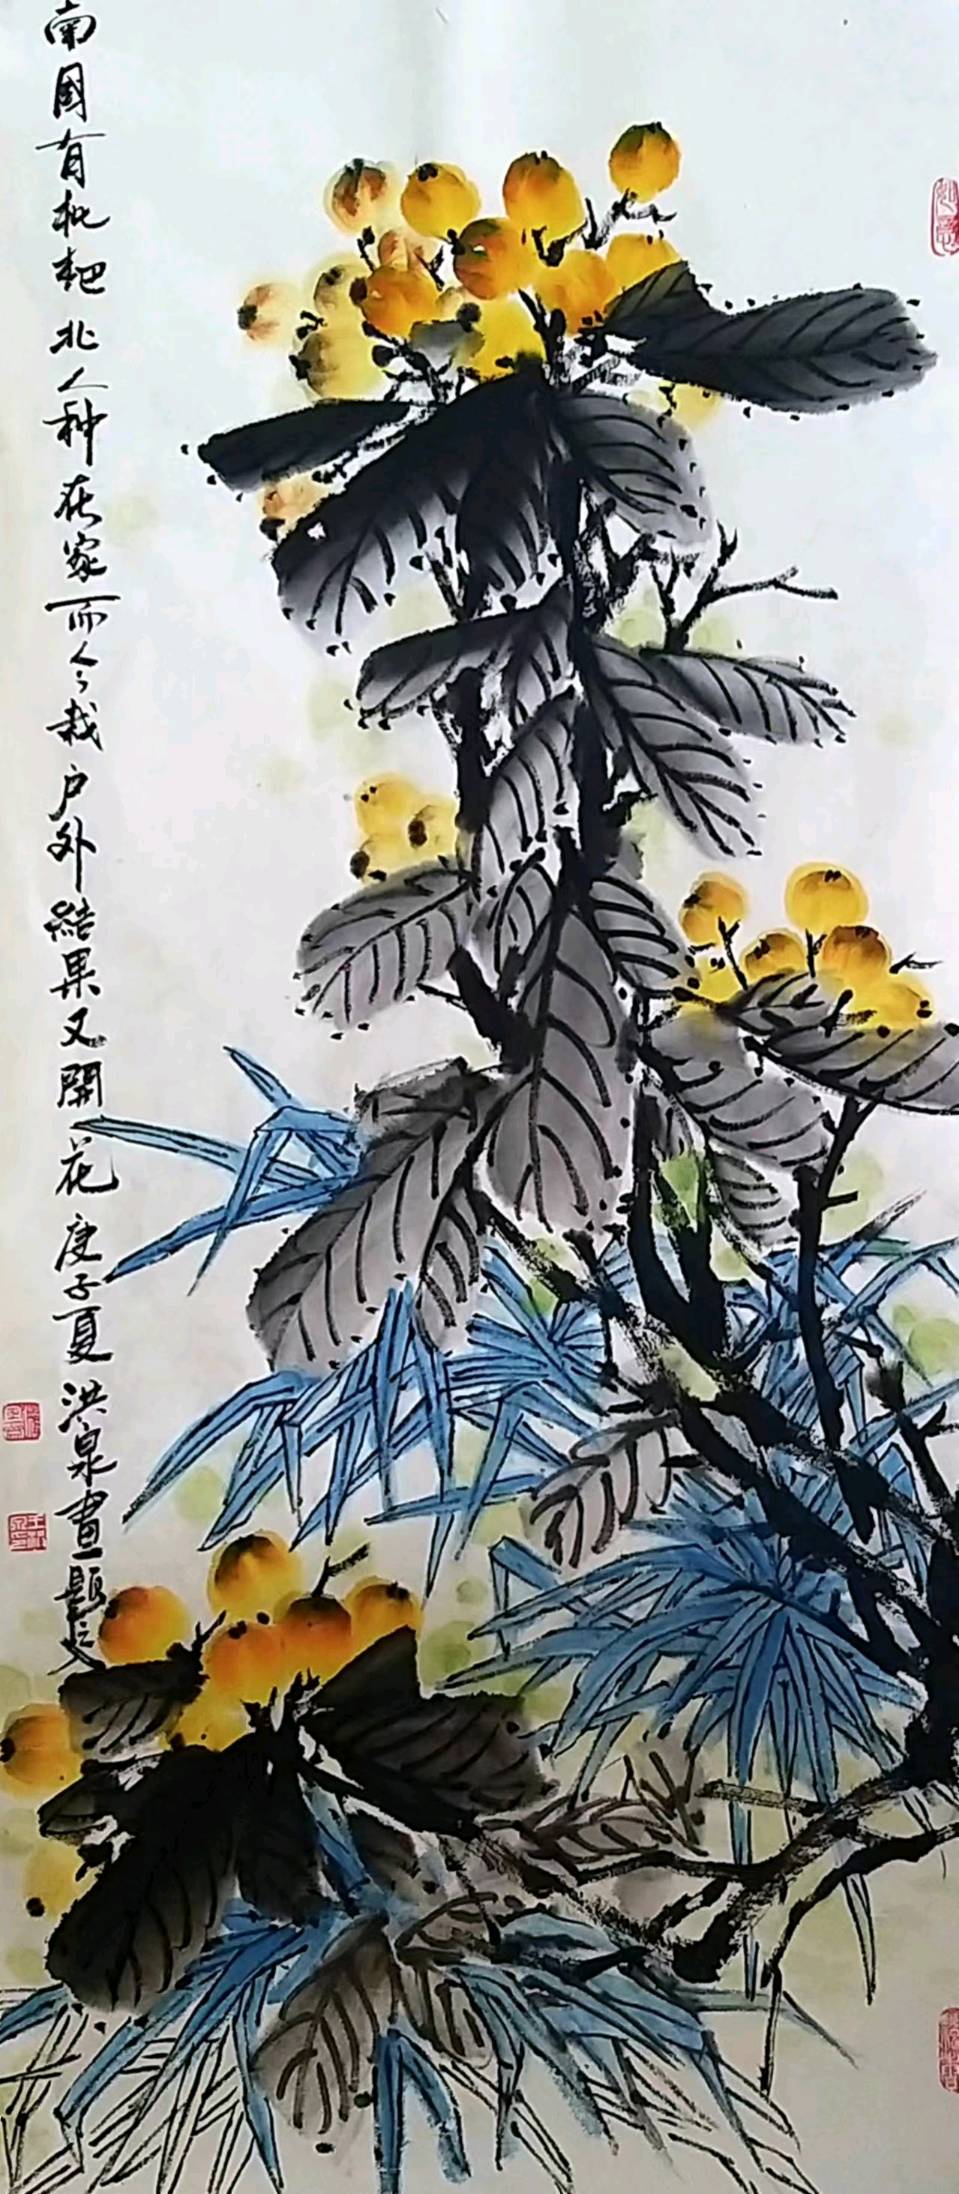 南国有枇杷北人种在家而今栽户外結果又開花庚子夏洪泉畫题之